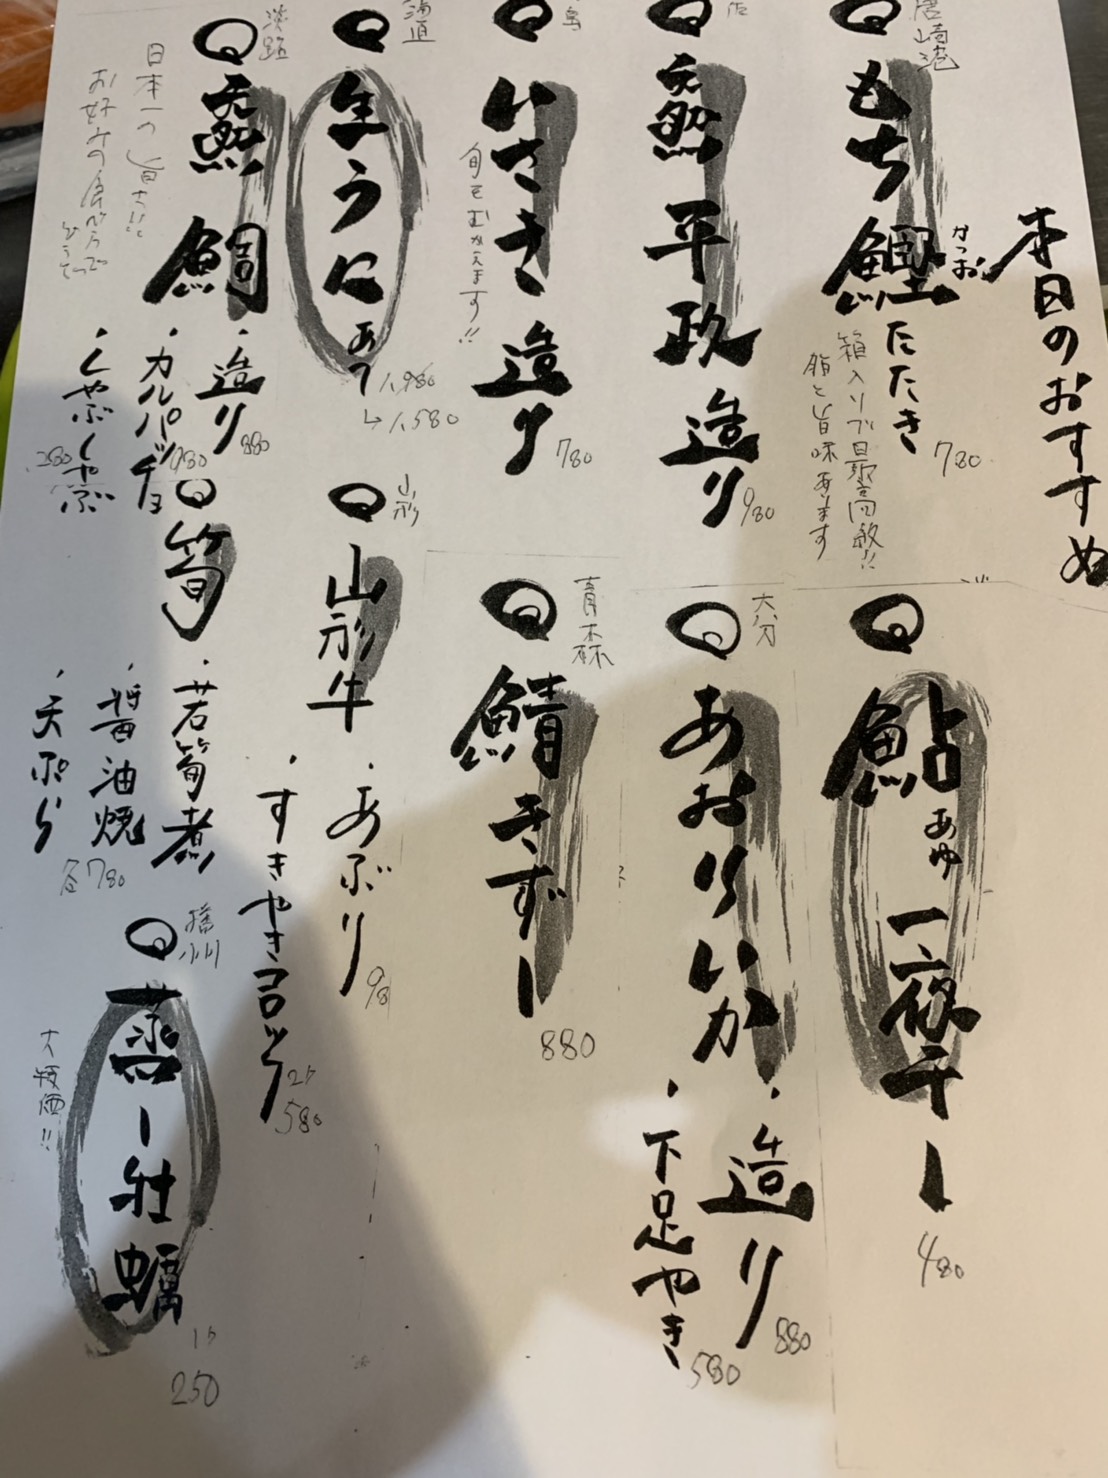 本日のおすすめ
唐崎港
もち鰹たたき
かつお
780
箱入りで目響高級!!
脂と旨味あります
天然平政造り
980
いさき造り
780
旬をむかえます!!
海道
生うにあて
1,980
→1,580
淡路
天然鯛
日本一の旨さ!!
お好みの食べ方で
どうぞ
・造り
880
・カルパッチョ
980
・しゃぶしゃぶ
1,280
鮎一夜干し
あゆ
480
大分
あおりいか
・造り
880
・下足やき
580
青森
鯖きずし
880
山形
山形牛
・あぶり
980
・すきやきコロッケ
2ケ
580
筍
・若筍煮
・醤油焼
・天ぷら
各780
播州
蒸し牡蠣
大特価!!
1ケ
250